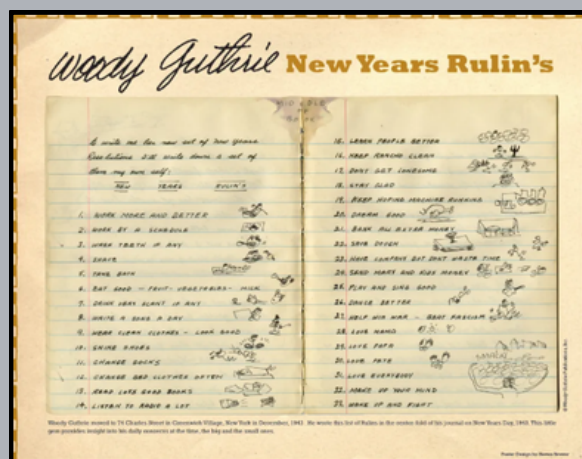 Woody Guthrie New Years Rulin's
MIDDLE
OF
BOOK
New Years Rulin's
1. WORK MORE AND BETTER
2. WORK BY A SCHEDULE
3. WASH TEETH IF ANY
4. SHAVE
5. TAKE BATH
6. EAT GOOD - FRUIT - VEGETABLES - MILK
7. DRINK VERY SCANT IF ANY
8. WRITE A SONG A DAY
9. WEAR CLEAN CLOTHES - LOOK GOOD
10. SHINE SHOES
11. CHANGE SOCKS
12. CHANGE BED CLOTHES OFTEN
13. READ LOTS GOOD BOOKS
14. LISTEN TO RADIO A LOT
15. LEARN PEOPLE BETTER
16. KEEP RANCHO CLEAN
17. DONT GET LONESOME
18. STAY GLAD
19. KEEP HOPING MACHINE RUNNING
20. DREAM GOOD
21. BANK ALL EXTRA MONEY
22. SAVE DOUGH
23. HAVE COMPANY BUT DONT WASTE TIME
24. SEND MARY AND KIDS MONEY
25. PLAY AND SING GOOD
26. DANCE BETTER
27. HELP WIN WAR - BEAT FASCISM
28. LOVE MAMA
29. LOVE PAPA
30. LOVE PETE
31. LOVE EVERYBODY
32. MAKE UP YOUR MIND
33. WAKE UP AND FIGHT
Woody Guthrie moved to 74 Charles Street in Greenwich Village, New York in December, 1942. He wrote this list of Rulins in the center fold of his journal on New Years Day, 1943. This little
gem provides insight into his daily concerns at the time, the big and the small ones.
© Woody Guthrie Publications, Inc.